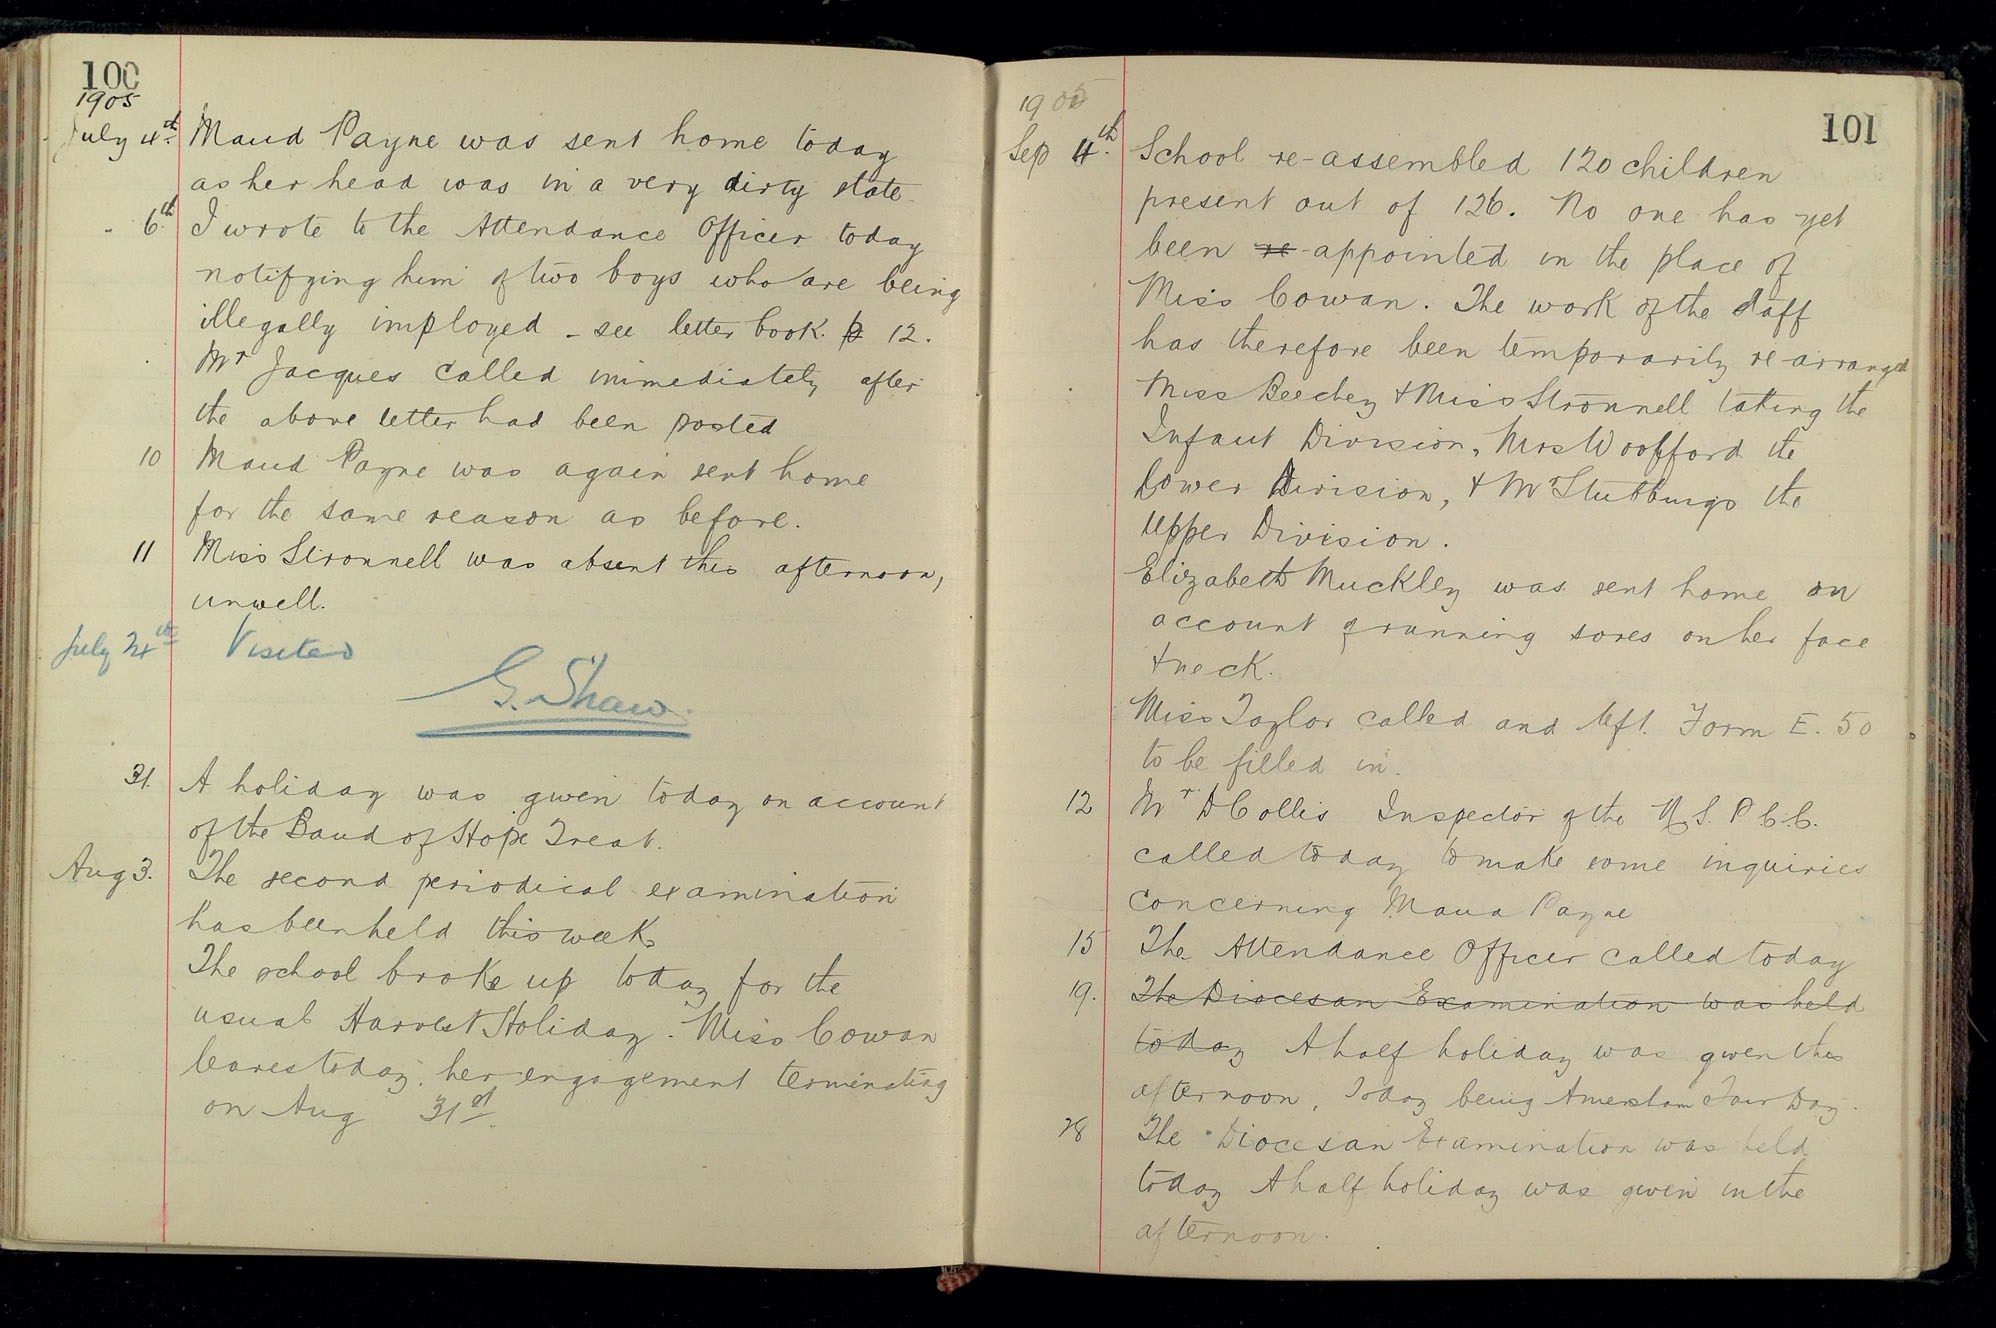 100
1905
July 4th Maud Payne was sent home today
as her head was in a very dirty state.
" 6th I wrote to the Attendance Officer today
notifying him of two boys who are being
illegally imployed - see letter book. p 12.
Mr Jacques called immediately after
the above letter had been posted
10 Maud Payne was again sent home
for the same reason as before.
11 Miss Stronnell was absent this afternoon,
unwell.
July 24th Visited
G. Shaw.
31. A holiday was given today on account
of the Band of Hope Treat.
Aug 3. The second periodical examination
has been held this week
The school broke up today for the
usual Harvest Holiday. Miss Cowan
leaves today, her engagement terminating
on Aug 31st.
101
1905
Sep 4th. School re-assembled 120 children
present out of 126. No one has yet
been re-appointed in the place of
Miss Cowan. The work of the staff
has therefore been temporarily re-arranged
Miss Beechey & Miss Stronnell taking the
Infant Division, Mrs Woofford the
Lower Division, & Mr Stubbings the
Upper Division.
Elizabeth Muckley was sent home on
account of running sores on her face
& neck.
Miss Taylor called and left Form E. 50
to be filled in.
12 Mr D Collis Inspector of the N.S.P.C.C.
called today to make some inquiries
concerning Maud Payne
15 The Attendance Officer called today
19. The Diocesan Examination was held
today A half holiday was given this
afternoon, Today being Amersham Fair Day.
28 The Diocesan Examination was held
today A half holiday was given in the
afternoon.